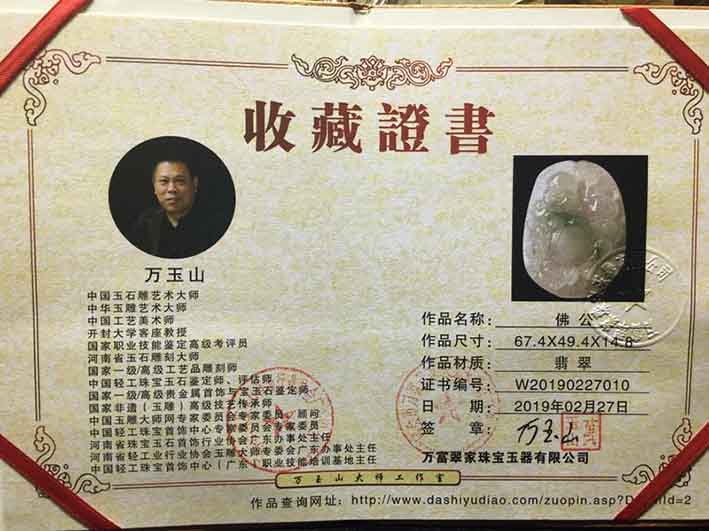 收藏證書
万玉山
中国玉石雕艺术大师
中华玉雕艺术大师
中国工艺美术师
开封大学客座教授
国家职业技能鉴定高级考评员
河南省玉石雕刻大师
国家一级/高级工艺品雕刻师
中国轻工珠宝玉石鉴定师、评估师
国家一级/高级贵金属首饰与宝玉石鉴定师
国家非遗（玉雕）高级技艺传承师
中国玉雕大师网专家委员会专家委员、顾问
中国轻工珠宝首饰中心专家委员会专家委员
河南省珠宝玉石首饰行业协会广东办事处主任
河南省轻工业行业协会玉雕专委会广东办事处主任
中国轻工珠宝首饰中心（广东）职业技能培训基地主任
作品名称： 佛公
作品尺寸： 67.4X49.4X14.8
作品材质： 翡翠
证书编号： W20190227010
日 期： 2019年02月27日
签 章： 万玉山
万富翠家珠宝玉器有限公司
万玉山大师工作室
作品查询网址：http://www.dashiyudiao.com/zuopin.asp?